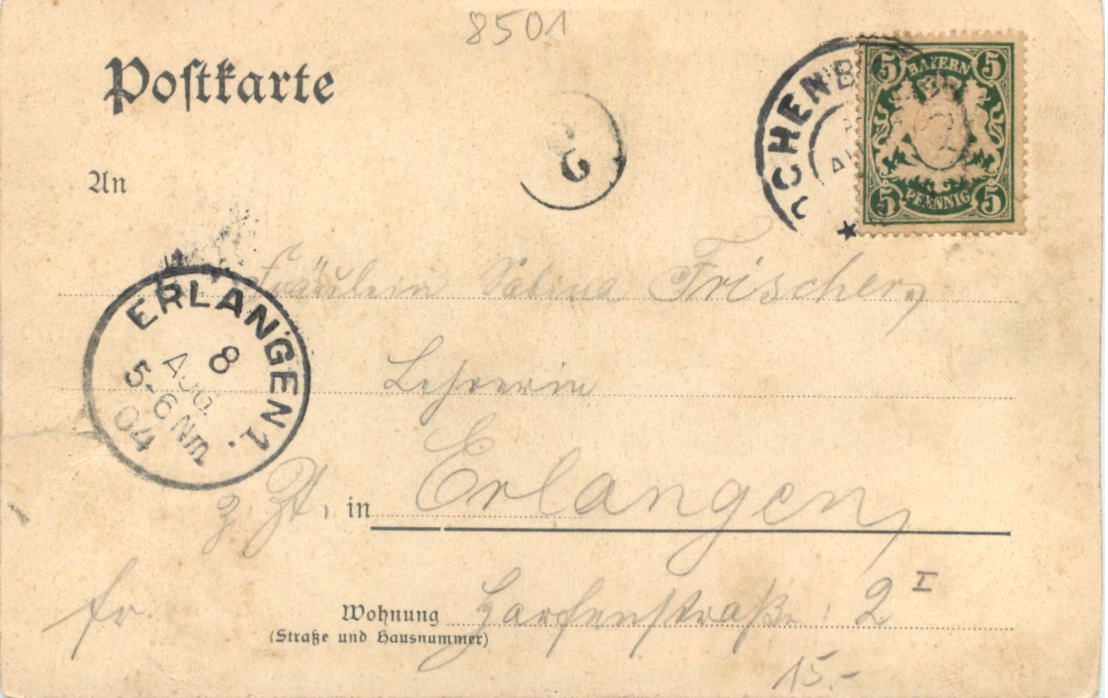 8501
Postkarte
BAYERN
5 5
5 PFENNIG 5
An
ERLANGEN 1.
8
AUG.
5-6 Nm
04
Fräulein Sabina
Lehrerin
z. Zt. in Erlangen,
fr.
Wohnung Harfenstraße: 2 I
(Straße und Hausnummer)
15.-